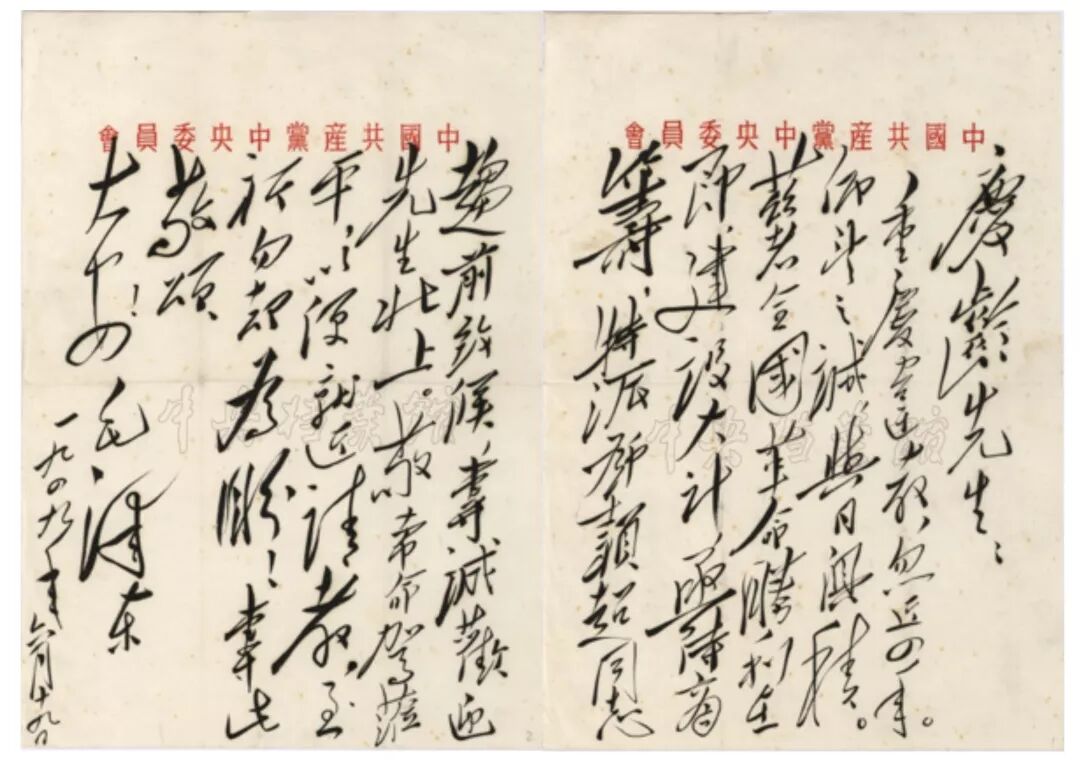 中國共産黨中央委員會
慶齡先生：
重慶違教，忽近四年。
仰望之誠，與日俱積。
兹者全國革命勝利在
即，建設大計，亟待商
籌，特派鄧穎超同志
中央档案館
中國共産黨中央委員會
趨前致候，專誠歡迎
先生北上。敬希命駕蒞
平，以便就近請教，至
祈勿却為盼！專此
敬頌
大安！毛澤东
一九四九年六月十九日
中央档案館